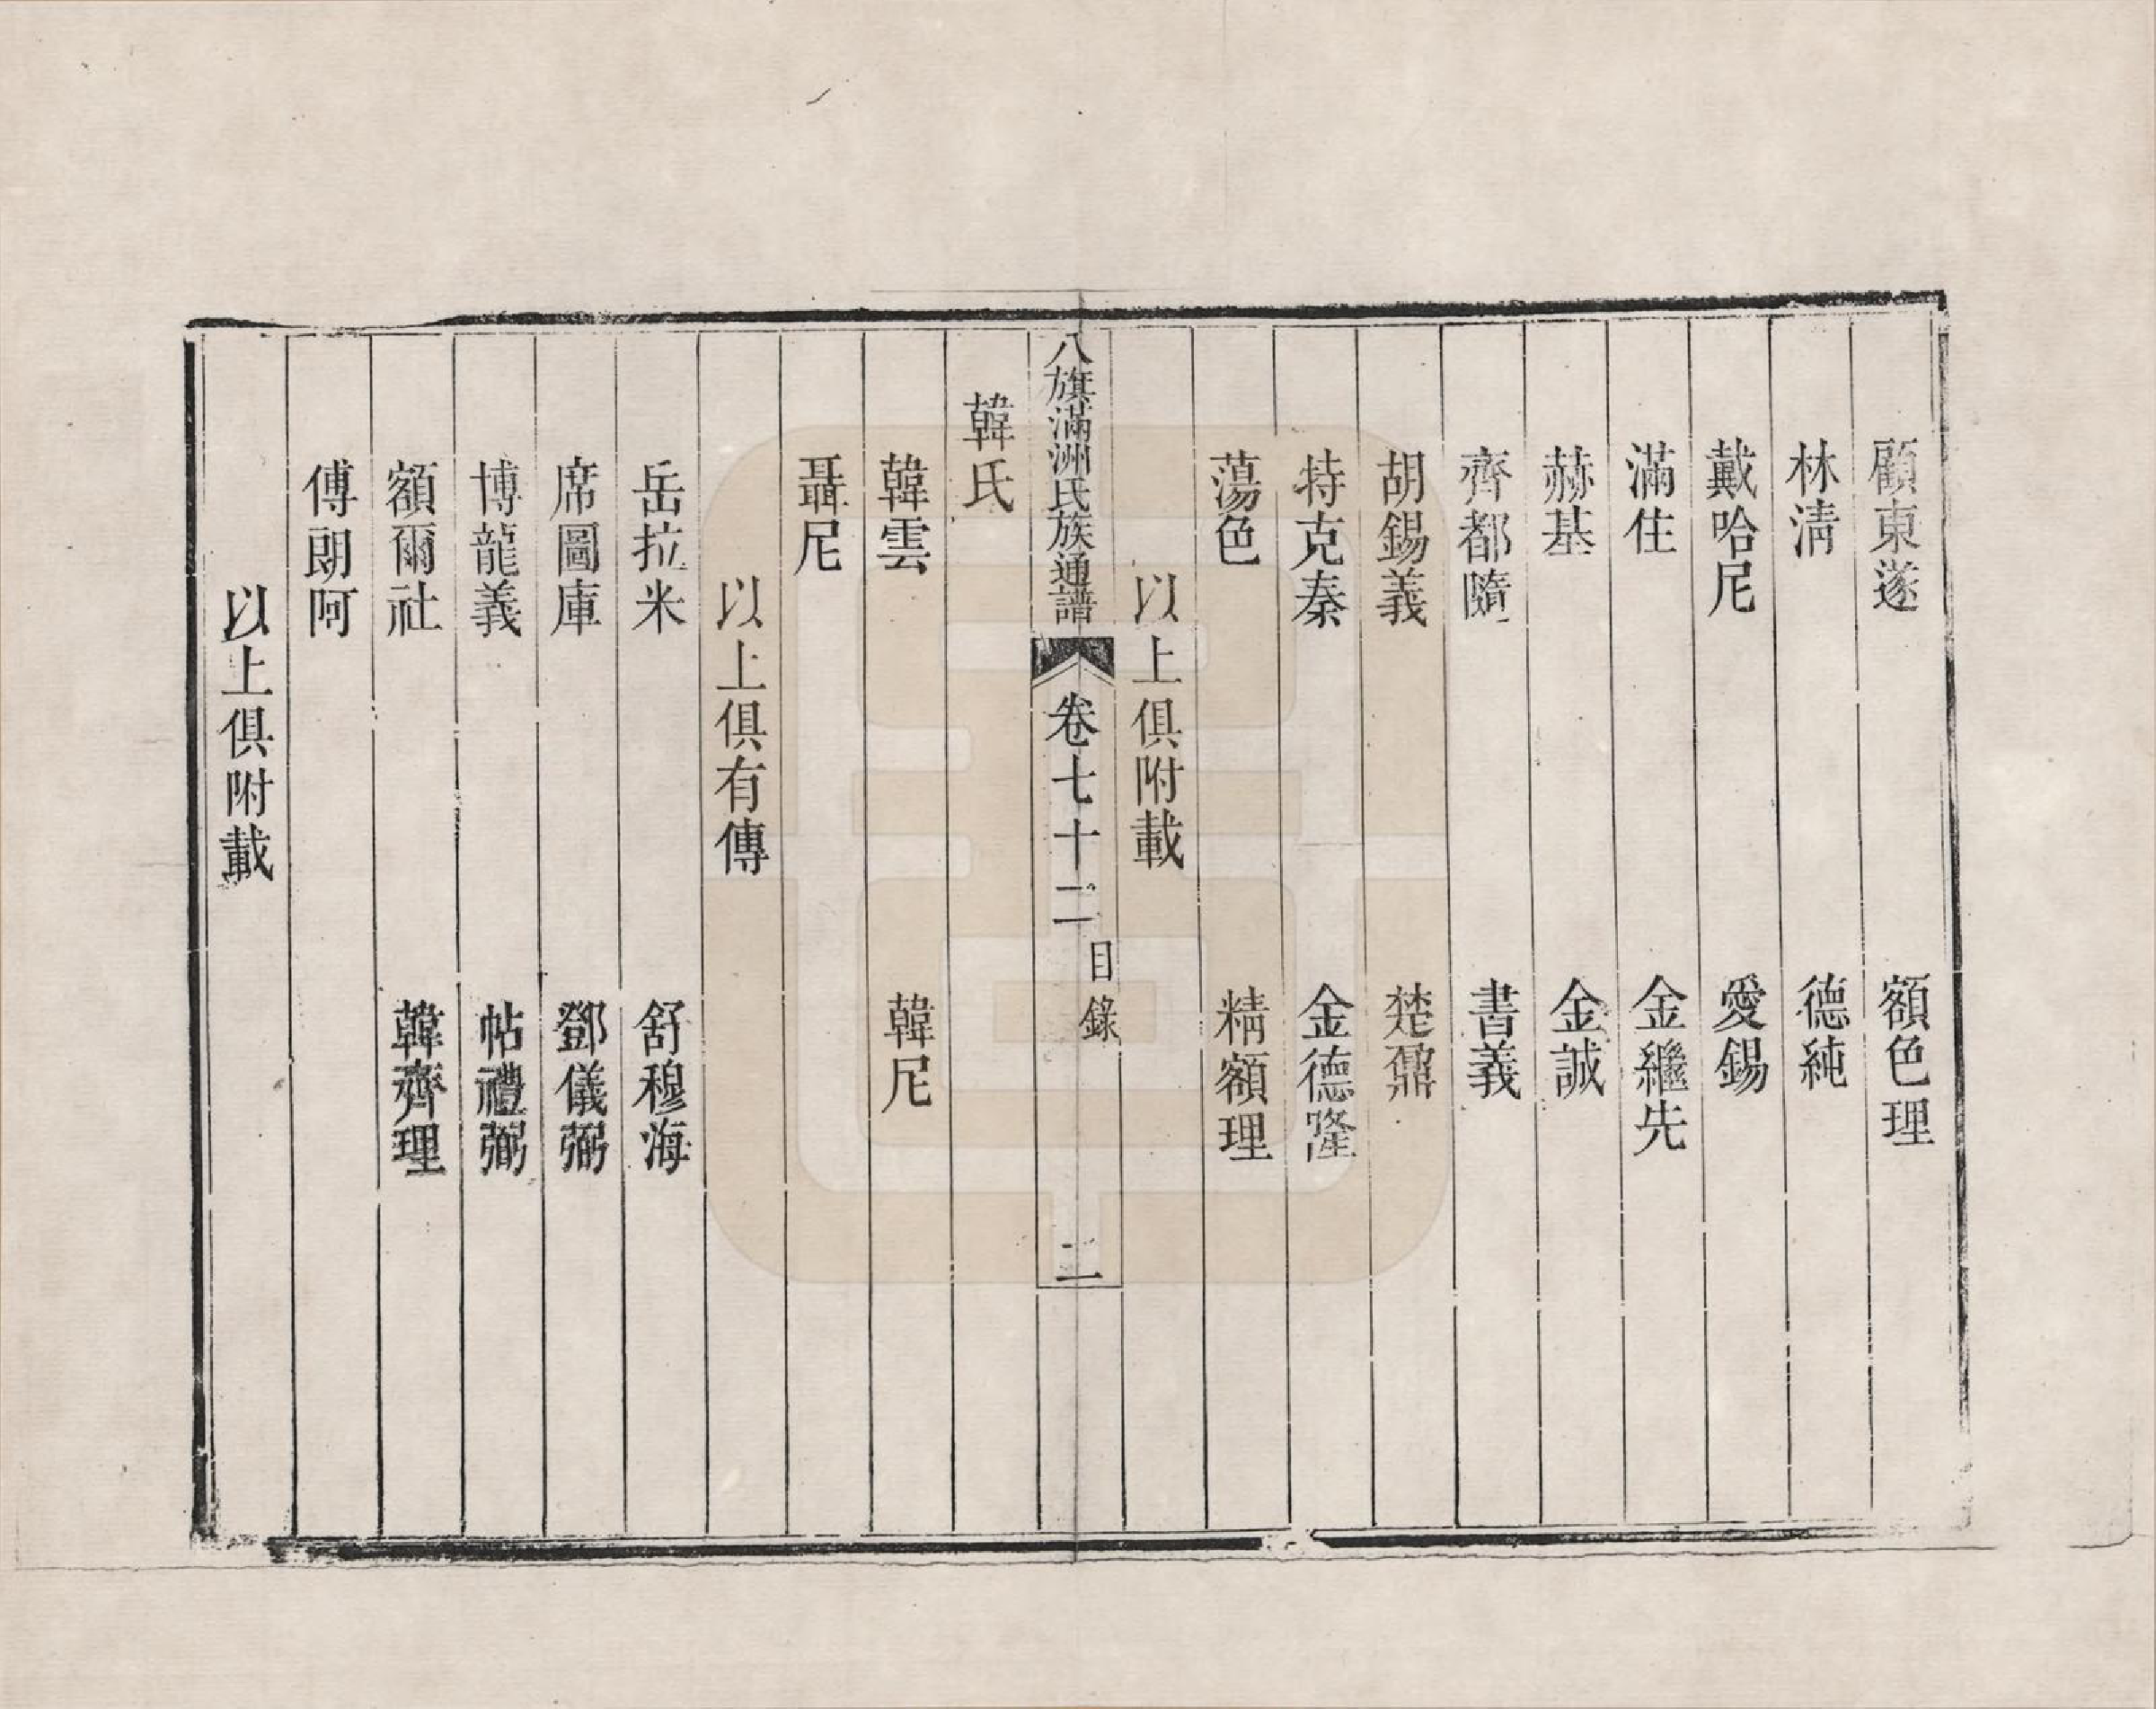 顧東遂　額色理
林淸　德純
戴哈尼　愛錫
滿住　金繼先
赫基　金誠
齊都隨　書義
胡錫義　楚鼐
特克秦　金德隆
蕩色　精額理
以上俱附載
八旗滿洲氏族通譜　卷七十二　目錄　二
韓氏
韓雲　韓尼
聶尼
以上俱有傳
岳拉米　舒穆海
席圖庫　鄧儀弼
博龍義　帖禮弼
額爾社　韓齊理
傅朗阿
以上俱附載